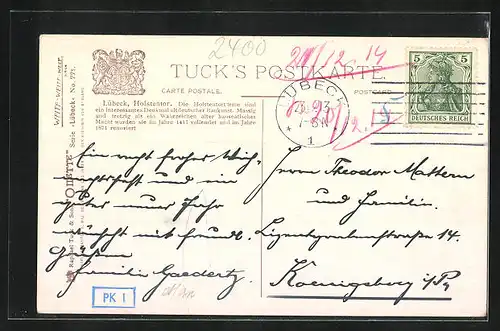 2400
21/12 14
TUCK'S POSTKARTE
CARTE POSTALE. POSTCARD
Lübeck, Holstentor. Die Holstentortürme sind
ein interessantes Denkmal altdeutscher Baukunst. Massig
und trotzig als ein Wahrzeichen alter hanseatischer
Macht wurden sie im Jahre 1477 vollendet und im Jahre
1871 renoviert
Serie «Lübeck» No. 771.
"OILETTE"
Raphael Tuck &
LÜBECK
7-8 N
1
5 5
DEUTSCHES REICH
Ein recht frohes Weih-
nachtsfest und ein
gutes neues Jahr
wünscht mit freundl.
Grüßen
Familie Gaedertz.
Herrn Theodor Mattern
und Familie.
Lizentgrabenstraße 14.
Koenigsberg i/Pr
PK I